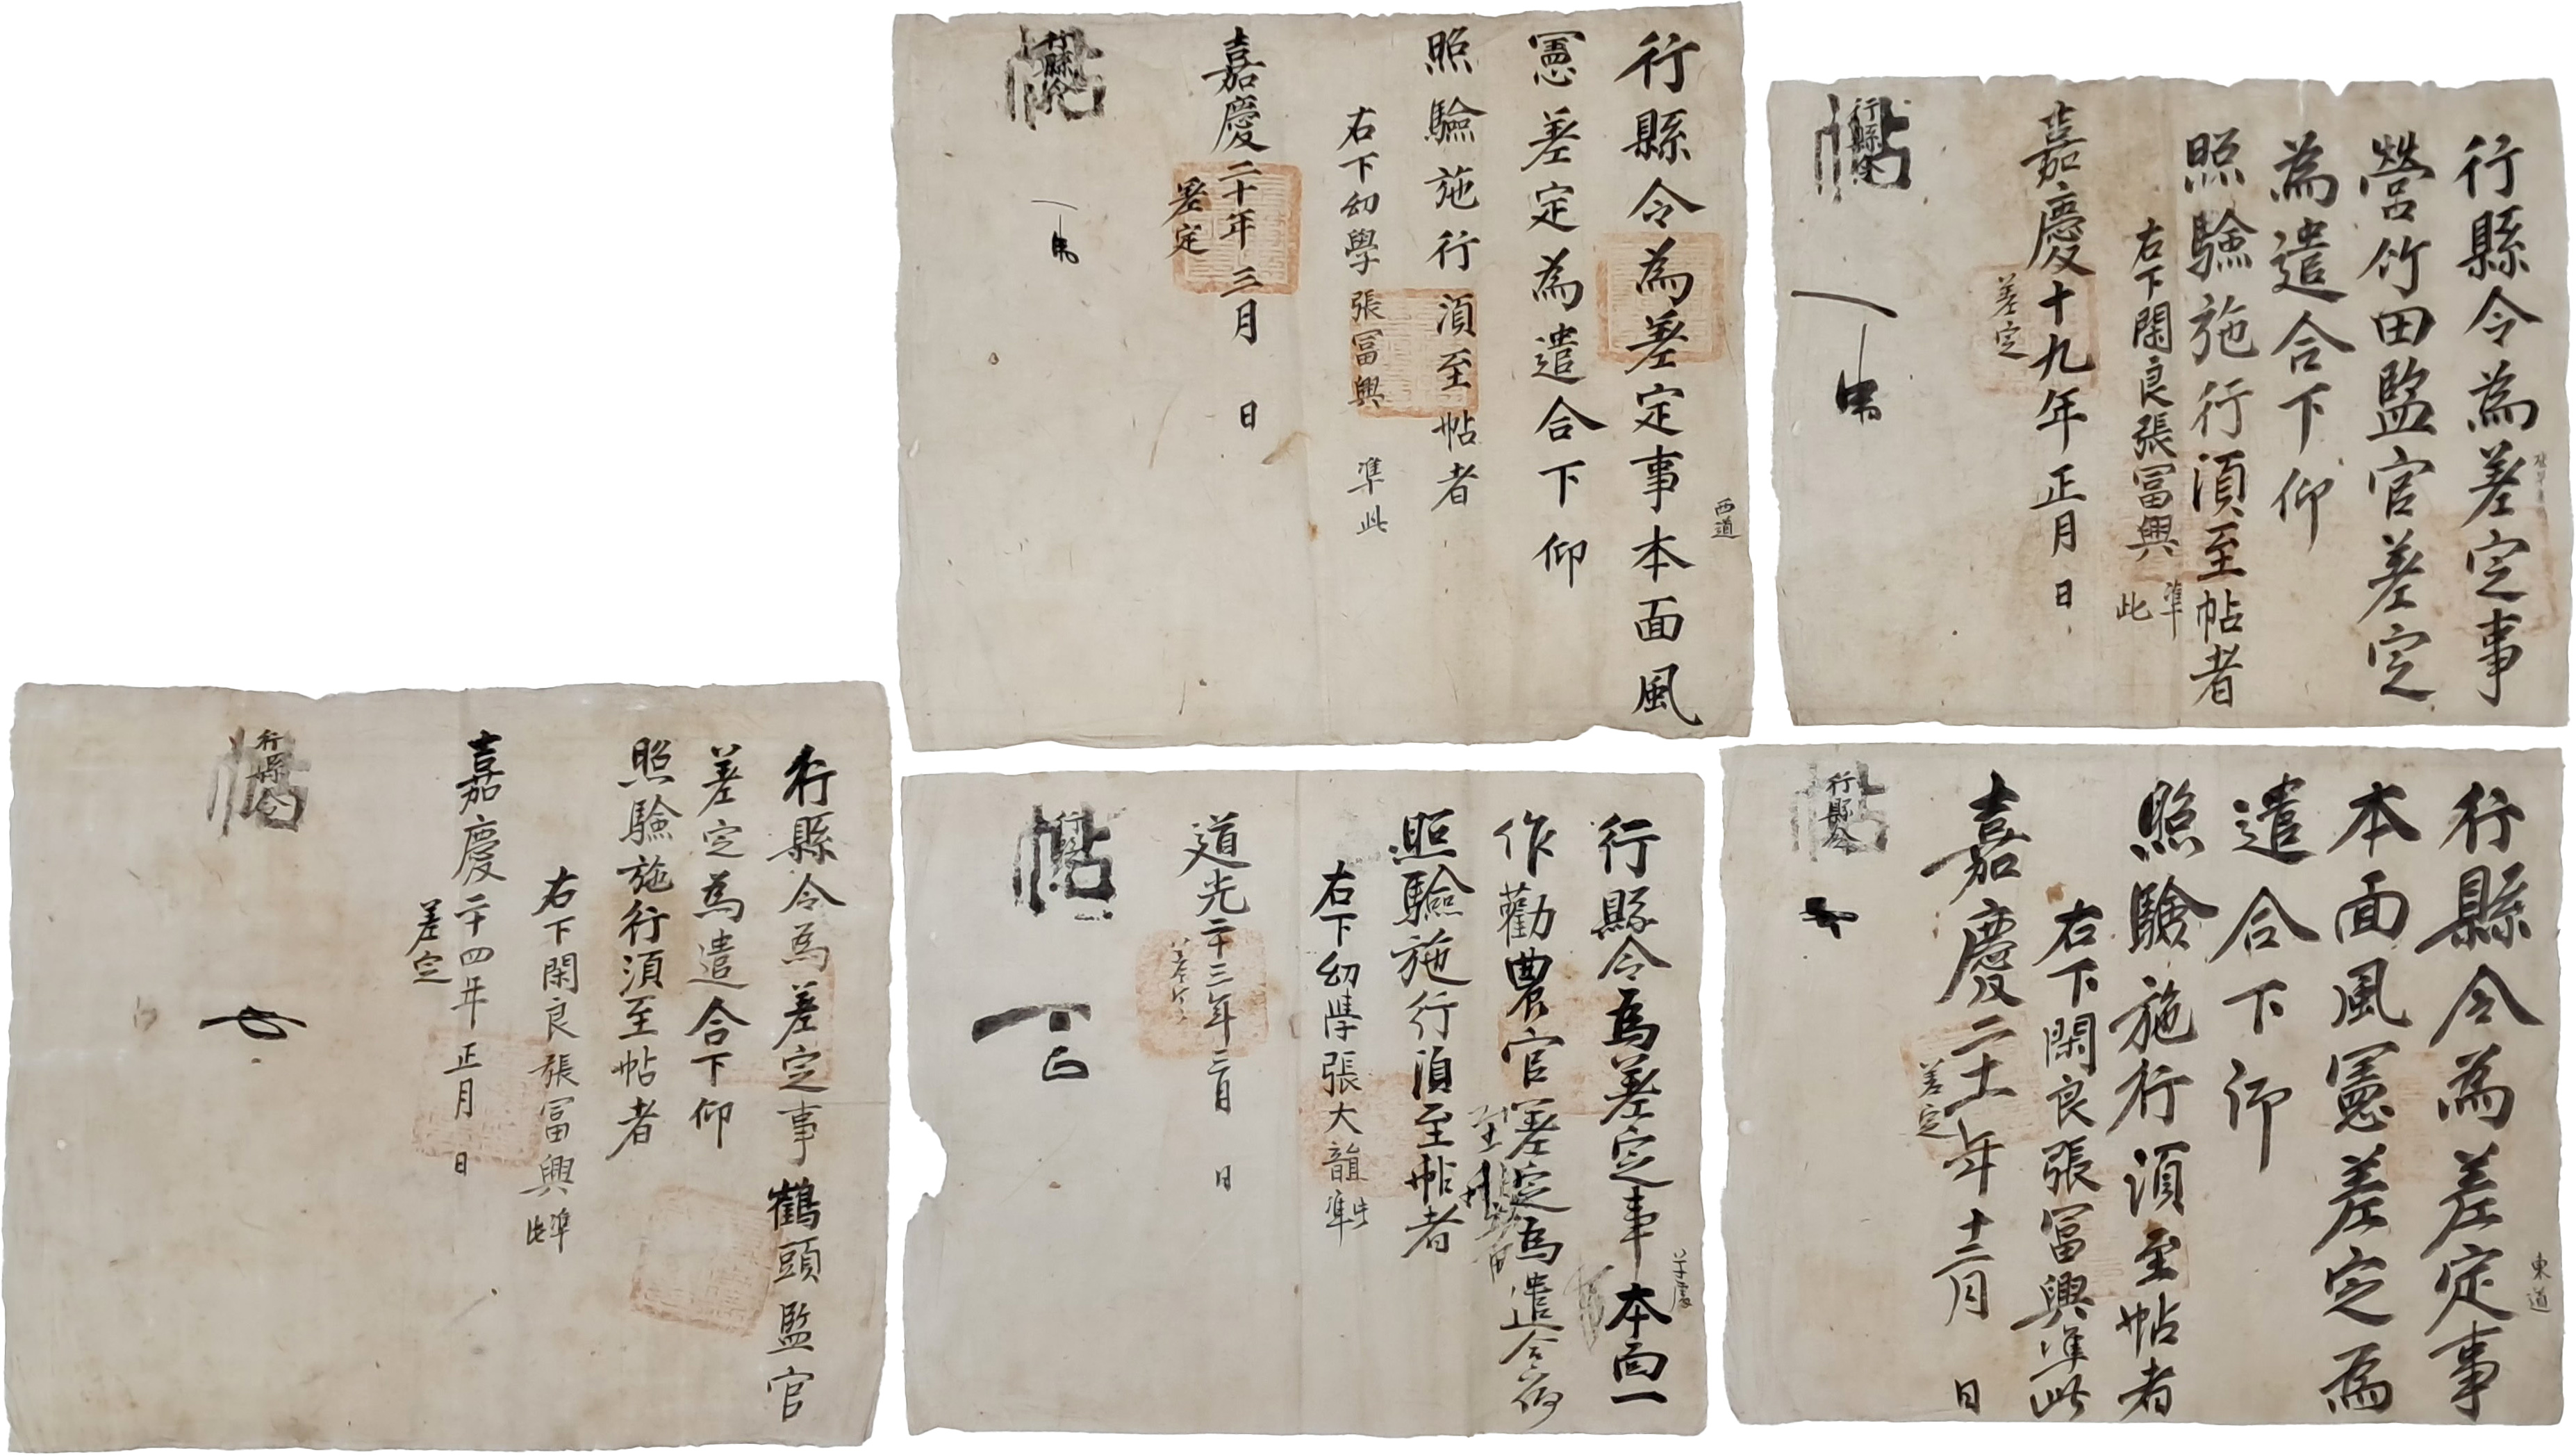 行縣令爲差定事
營竹田監官差定
爲遣合下仰
照驗施行須至帖者
右下閑良張冨興 準此
嘉慶十九年正月 日
差定
行縣令
帖
西道
行縣令爲差定事本面風
憲差定爲遣合下仰
照驗施行須至帖者
右下幼學張冨興 準此
嘉慶二十年三月 日
差定
行縣令
帖
東道
行縣令爲差定事
本面風憲差定爲
遣合下仰
照驗施行須至帖者
右下閑良張冨興準此
嘉慶二十一年十二月 日
差定
行縣令
帖
行縣令爲差定事本面一
作勸農官差定爲遣合仰
照驗施行須至帖者
右下幼學張大龍準此
道光二十三年二月 日
差定
行縣令
帖
行縣令爲差定事鶴頭監官
差定爲遣合下仰
照驗施行須至帖者
右下閑良張冨興準此
嘉慶二十四年正月 日
差定
行縣令
帖